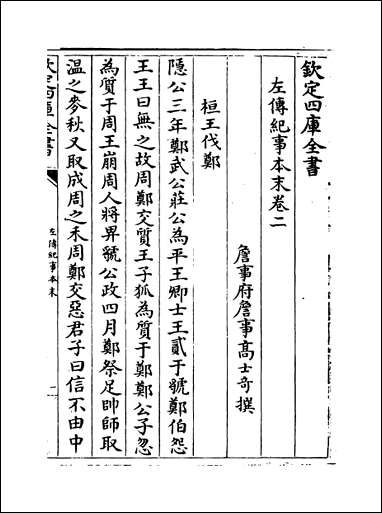 欽定四庫全書
左傳紀事本末卷二
詹事府詹事高士奇撰
桓王伐鄭
隱公三年鄭武公莊公為平王卿士王貳于虢鄭伯怨
王王曰無之故周鄭交質王子狐為質于鄭鄭公子忽
為質于周王崩周人將畀虢公政四月鄭祭足帥師取
溫之麥秋又取成周之禾周鄭交惡君子曰信不由中
左傳紀事本末
一